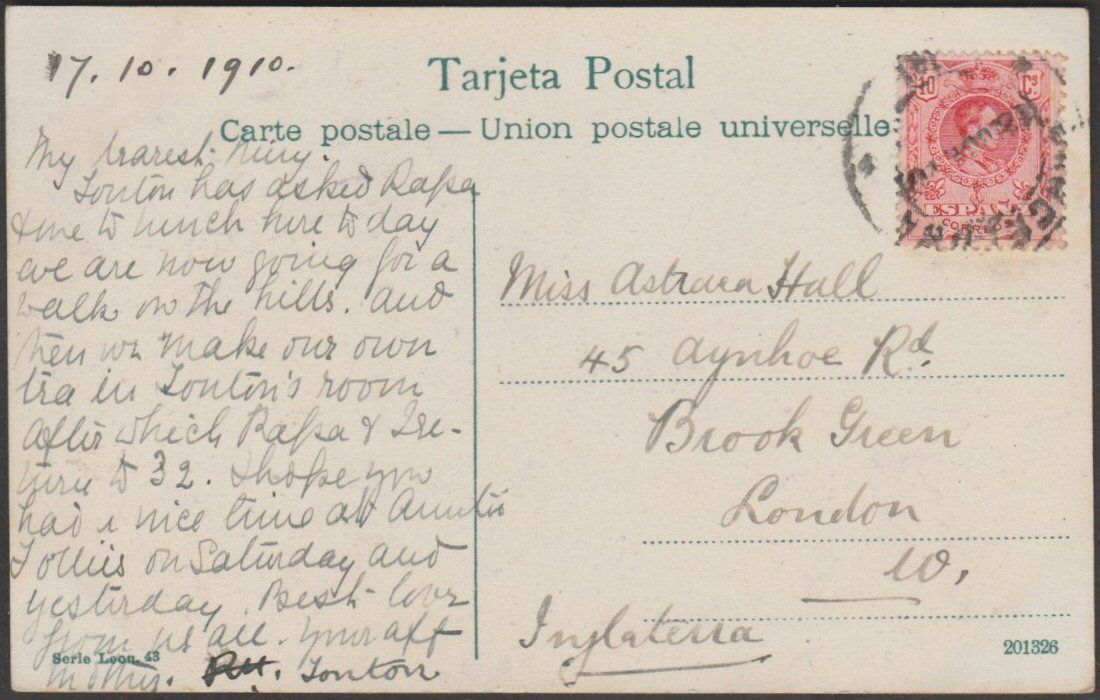 17.10.1910.
Tarjeta Postal
Carte postale — Union postale universelle
My dearest
Tonton has asked Papa
& me to lunch here to day
we are now going for a
walk on the hills. and
then we make our own
tea in Tonton's room
after which Papa & I re-
turn to 32. I hope you
had a nice time at Auntie
Tollies on Saturday and
yesterday. Best love
from us all. Your aff
mother. Tonton
Serie Leon. 43
10 Cs
ESPAÑA
CORREOS
Miss Astraea Hall
45 Aynhoe Rd.
Brook Green
London
W.
Inglaterra
201326